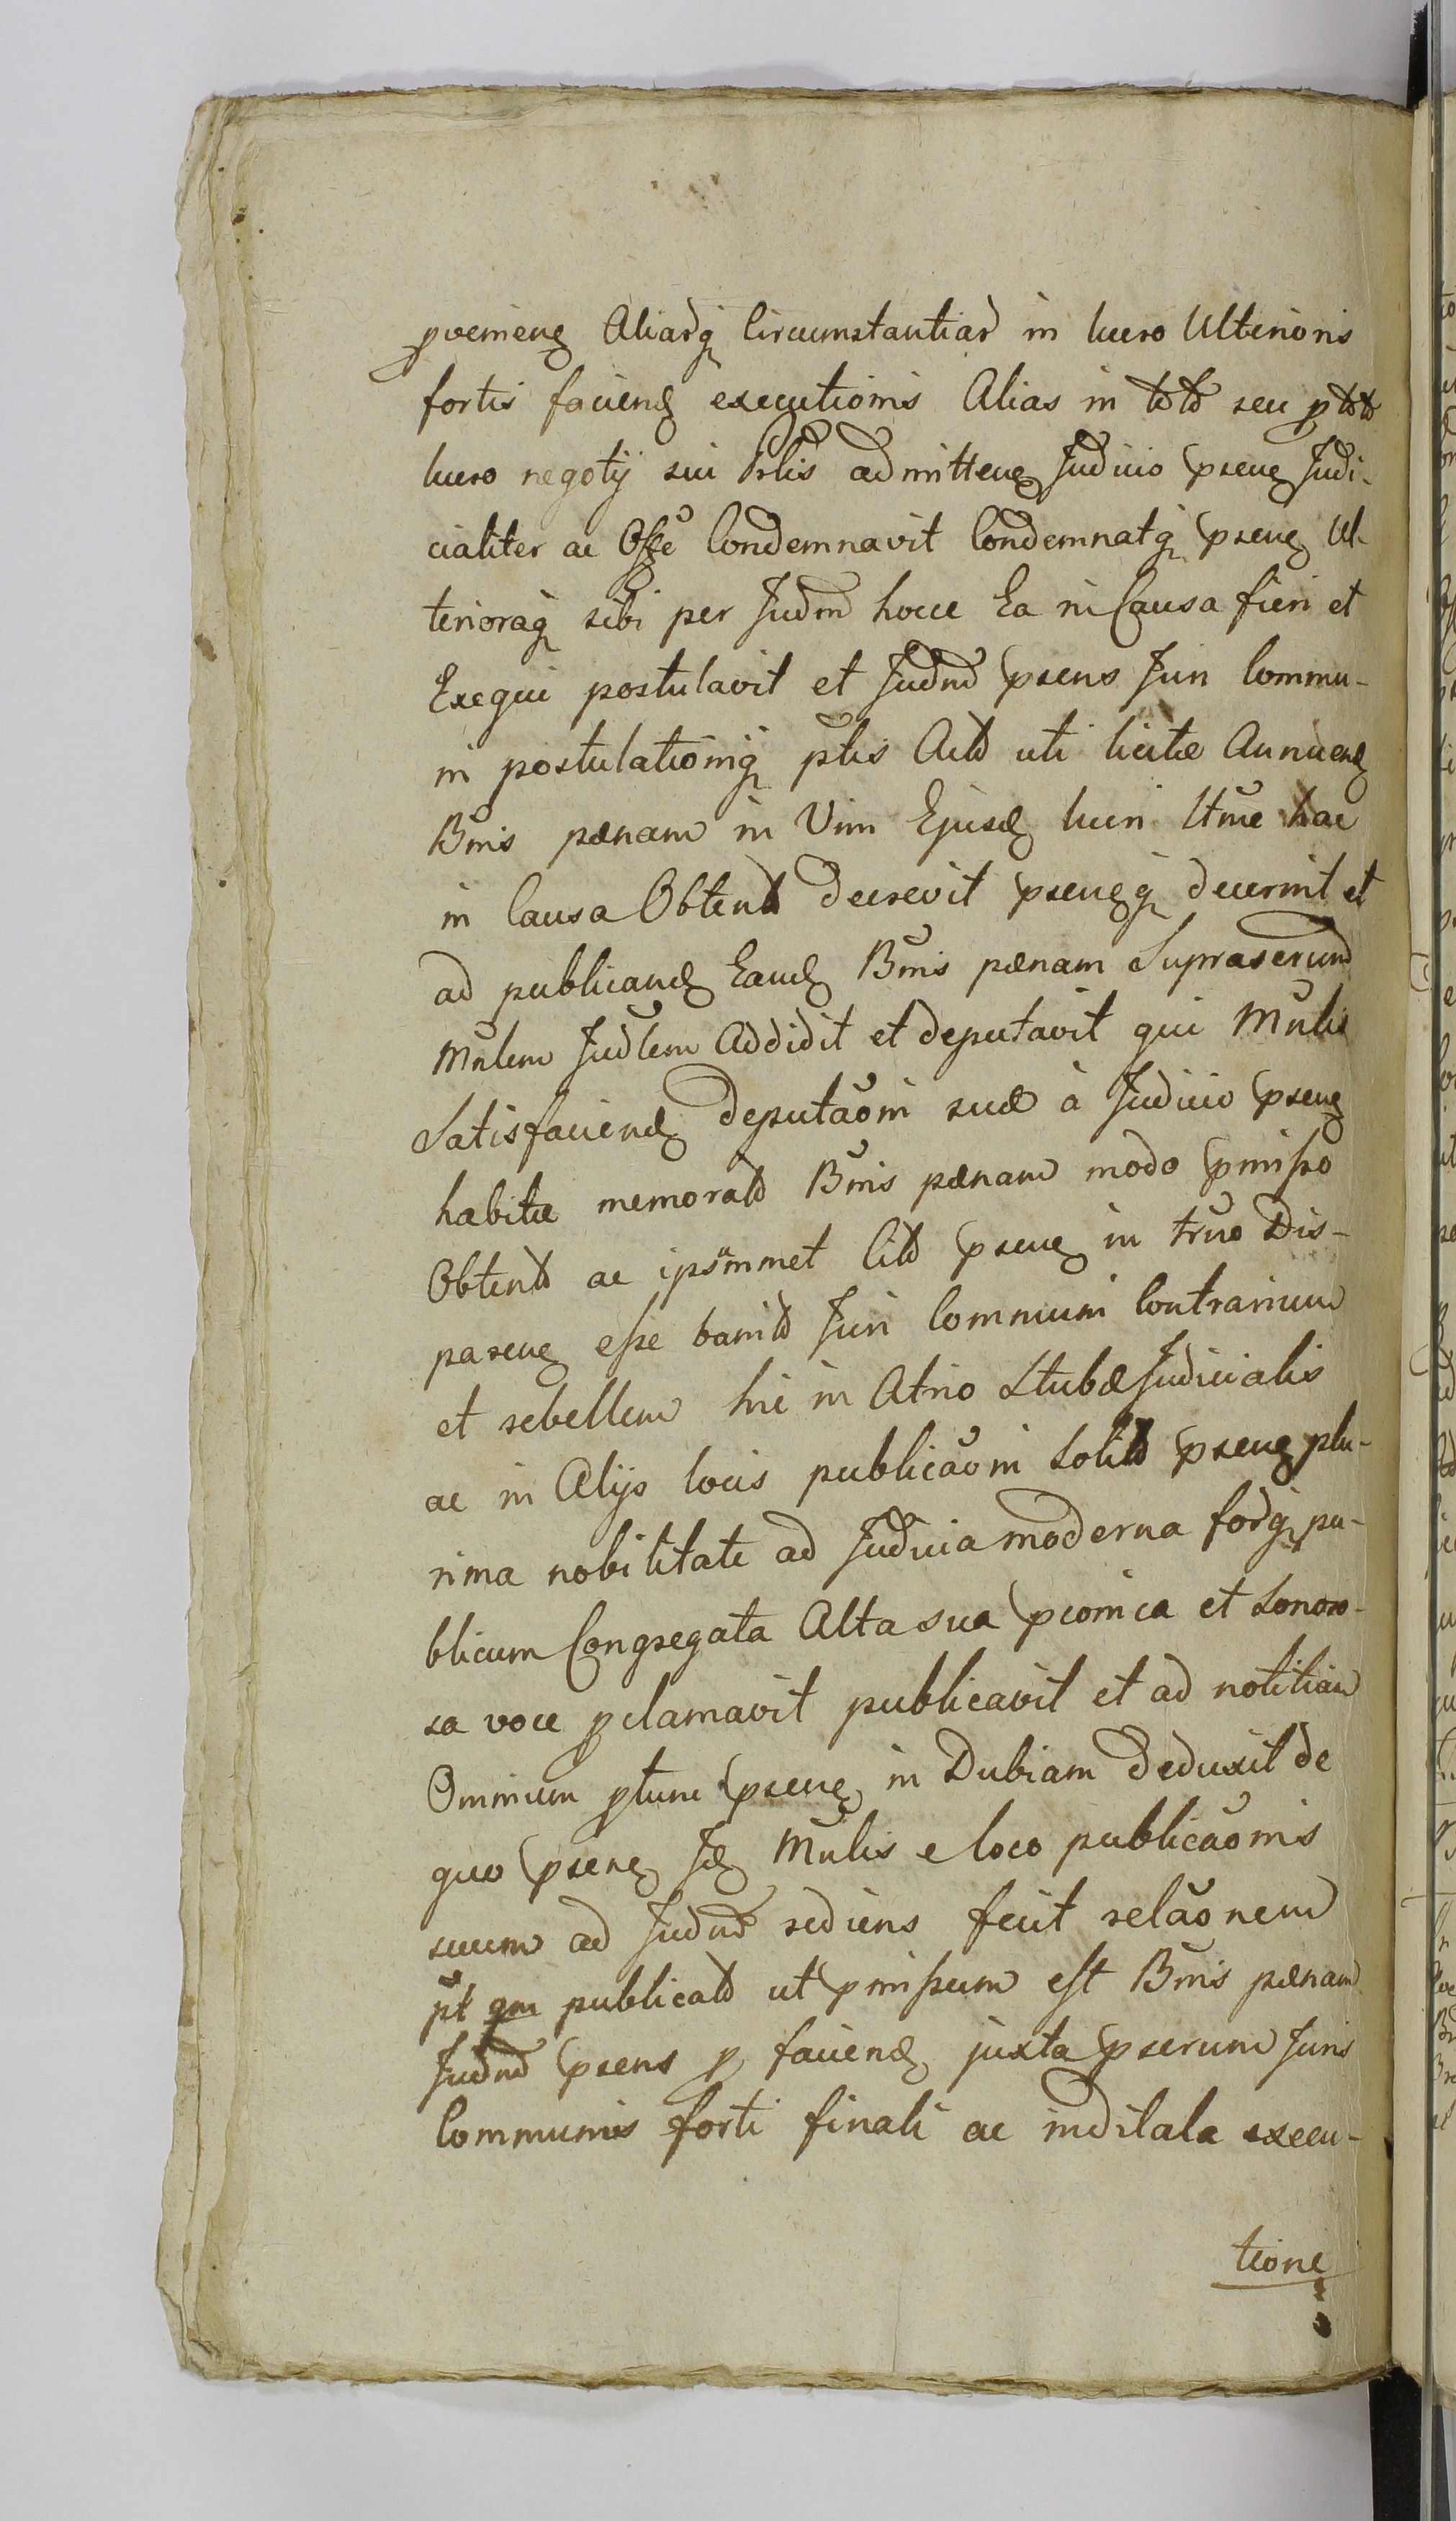 pvemieng Aliarq̃ Circumstantiar in lucro Ulterioris
fortis faciend executionis Alias in toto seu p toto
lucro negotij sui Prlis admitteng Judicio pseng Judi-
cialiter ac Offe Condemnavit Condemnatq̃ pseng Ul-
terioraq̃ sibi per Judm hocce Ea in Causa fieri et
Exequi postulavit et Judm psens Juri Commu-
ni postulationiq̃ ptis Actt uti licitæ Annuend
Bnis pænam in Vim Ejusd lucri Ltme hac
in Causa Obtent decrevit psengq̃ decernit et
ad publicand Eand Bnis pænam Suprascrum
Mnlem Judlem Addidit et deputavit qui Mnlis
Satisfaciend deputaõni suæ à Judicio pseng
habitæ memorat Bnis pænam modo pmisso
Obtent ac ipsummet Citt pseng in trno Dis-
pareng esse banit Juri Communi Contrarium
et rebellem hic in Atrio Stubæ Judicialis
ac in Alijs locis publicaõni Solit pseng plu-
rima nobilitate ad Judicia moderna forq̃ pu-
blicum Congregata Alta sua pconica et Sonoro-
sa voce pclamavit publicavit et ad notitiam
Omnium ptunc pseng in Dubiam deduxit de
quo pseng Id Mnlis e loco publicaõnis
suum ad Judm rediens fecit relaõnem
pt qm publicat ut pmissum est Bnis pænam
Judm psens p faciend juxta pscrum Juris
Communis forti finali ac indilata execu-
tione